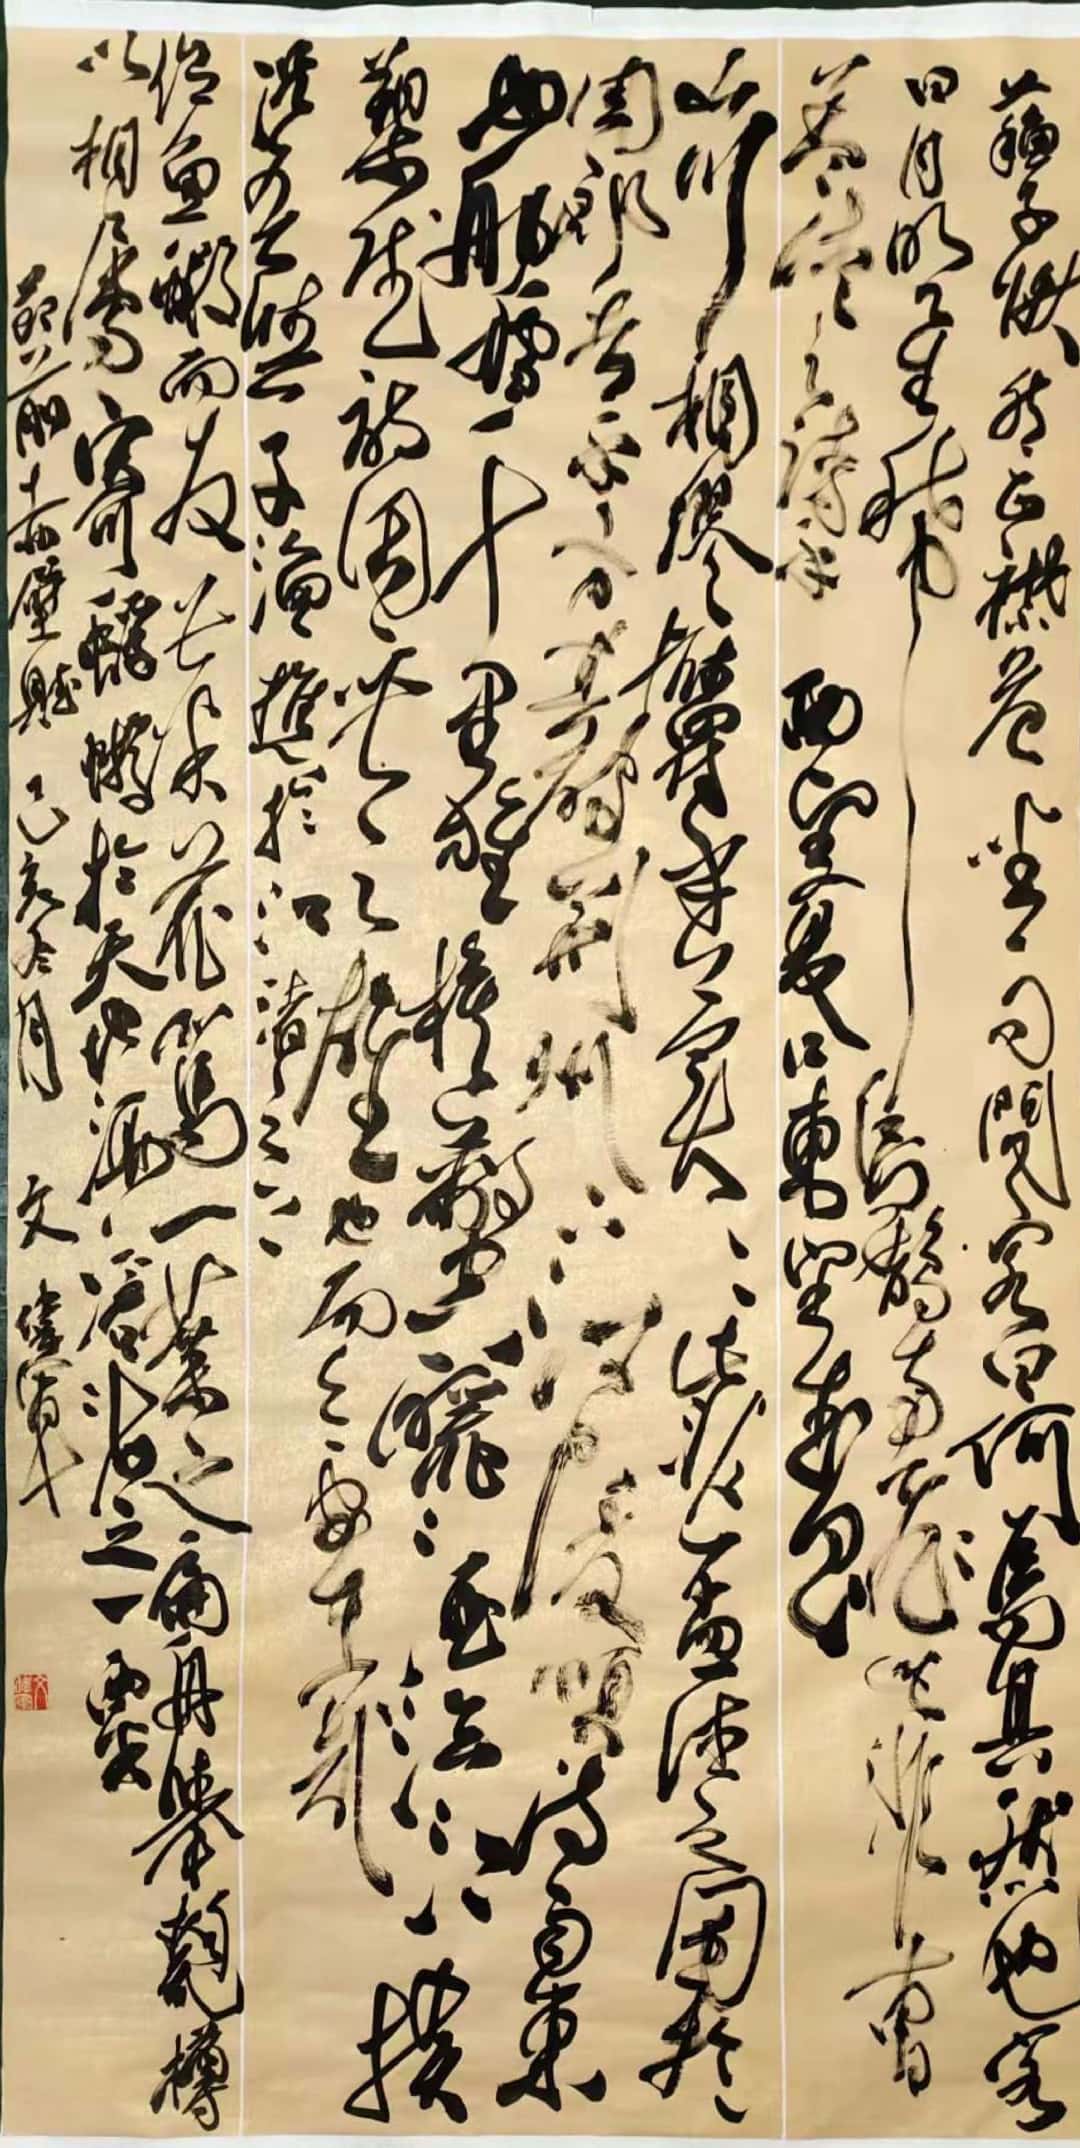 蘇子愀然正襟危坐而問客曰何為其然也客
曰月明星稀烏鵲南飛此非曹
孟德之詩乎西望夏口東望武昌
山川相繆鬱乎蒼蒼此非孟德之困於
周郎者乎方其破荊州下江陵順流而東
也舳艫千里旌旗蔽空釃酒臨江橫
槊賦詩固一世之雄也而今安在哉
況吾與子漁樵於江渚之上
侶魚蝦而友麋鹿駕一葉之扁舟舉匏樽
以相屬寄蜉蝣於天地渺滄海之一粟
節前赤壁賦 己亥冬月 文